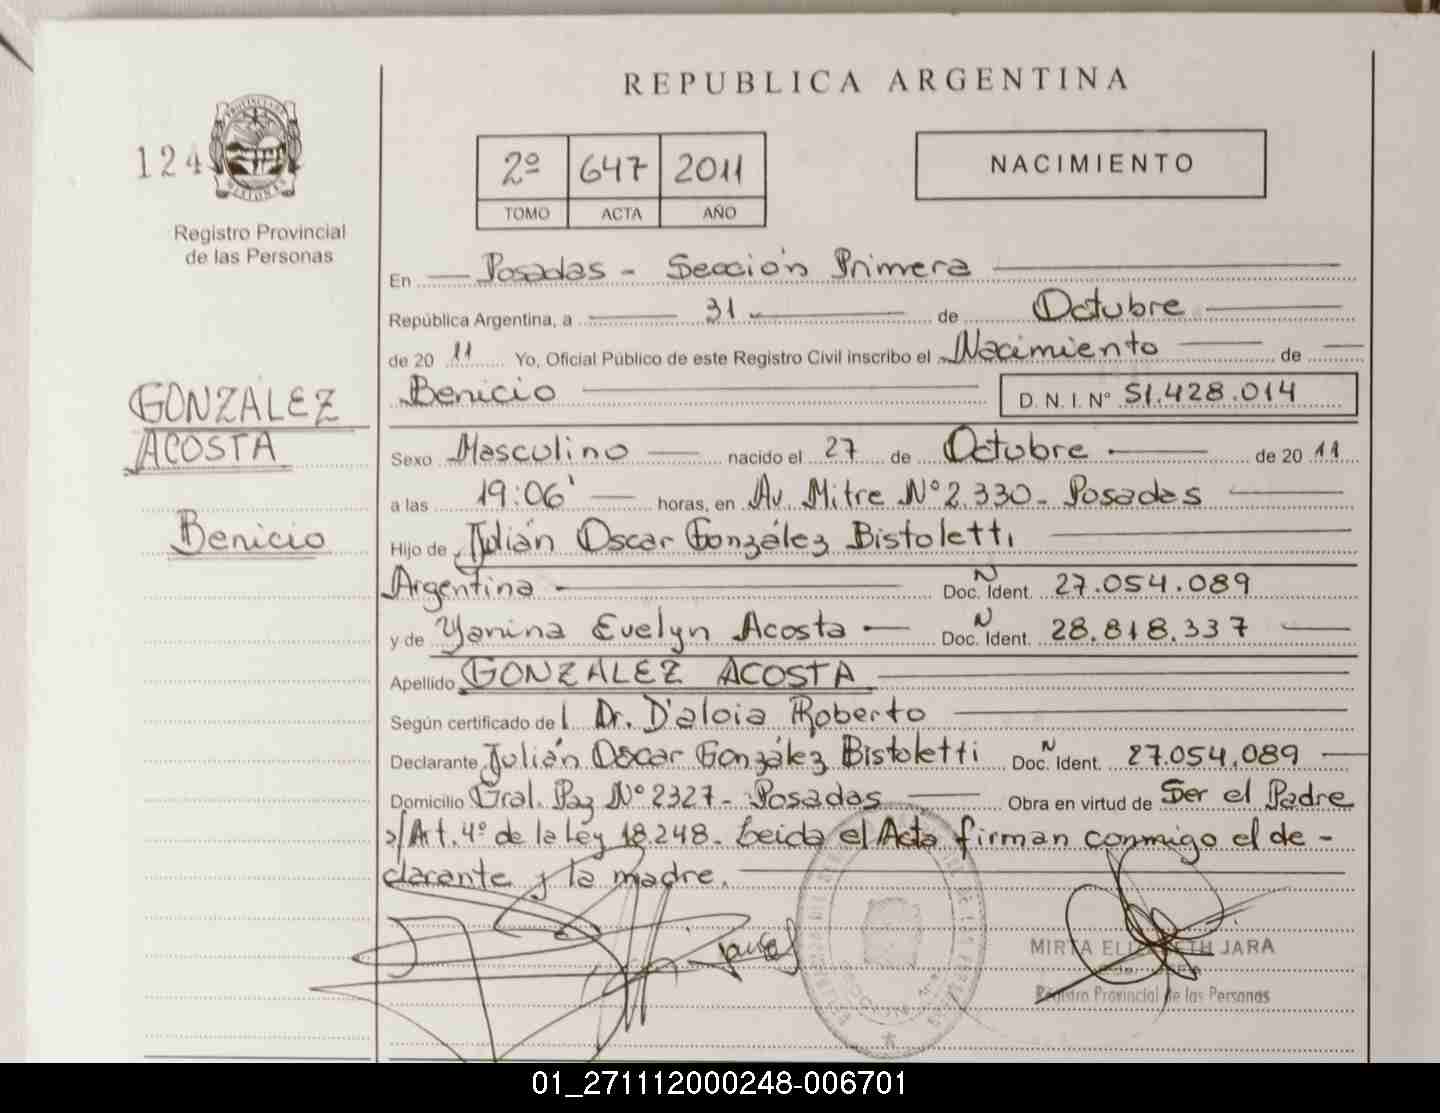 REPUBLICA ARGENTINA
124
PROVINCIA DE MISIONES
Registro Provincial
de las Personas
2º 647 2011
TOMO ACTA AÑO
NACIMIENTO
En Posadas - Sección Primera
República Argentina, a 31 de Octubre
de 20 11 Yo, Oficial Público de este Registro Civil inscribo el Nacimiento de
Benicio D. N. I. Nº 51.428.014
GONZALEZ
ACOSTA
Benicio
Sexo Masculino nacido el 27 de Octubre de 20 11
a las 19:06' horas, en Av. Mitre Nº 2.330- Posadas
Hijo de Julián Oscar González Bistoletti
Argentina N Doc. Ident. 27.054.089
y de Yanina Evelyn Acosta N Doc. Ident. 28.818.337
Apellido GONZALEZ ACOSTA
Según certificado de l Dr. D'aloia Roberto
Declarante Julián Oscar González Bistoletti N Doc. Ident. 27.054.089
Domicilio Gral. Paz Nº 2327- Posadas Obra en virtud de Ser el Padre
s/Art. 4º de la Ley 18.248. Leida el Acta firman conmigo el de-
clarante y la madre.
MIRTA ELIZABETH JARA
Registro Provincial de las Personas
01_271112000248-006701